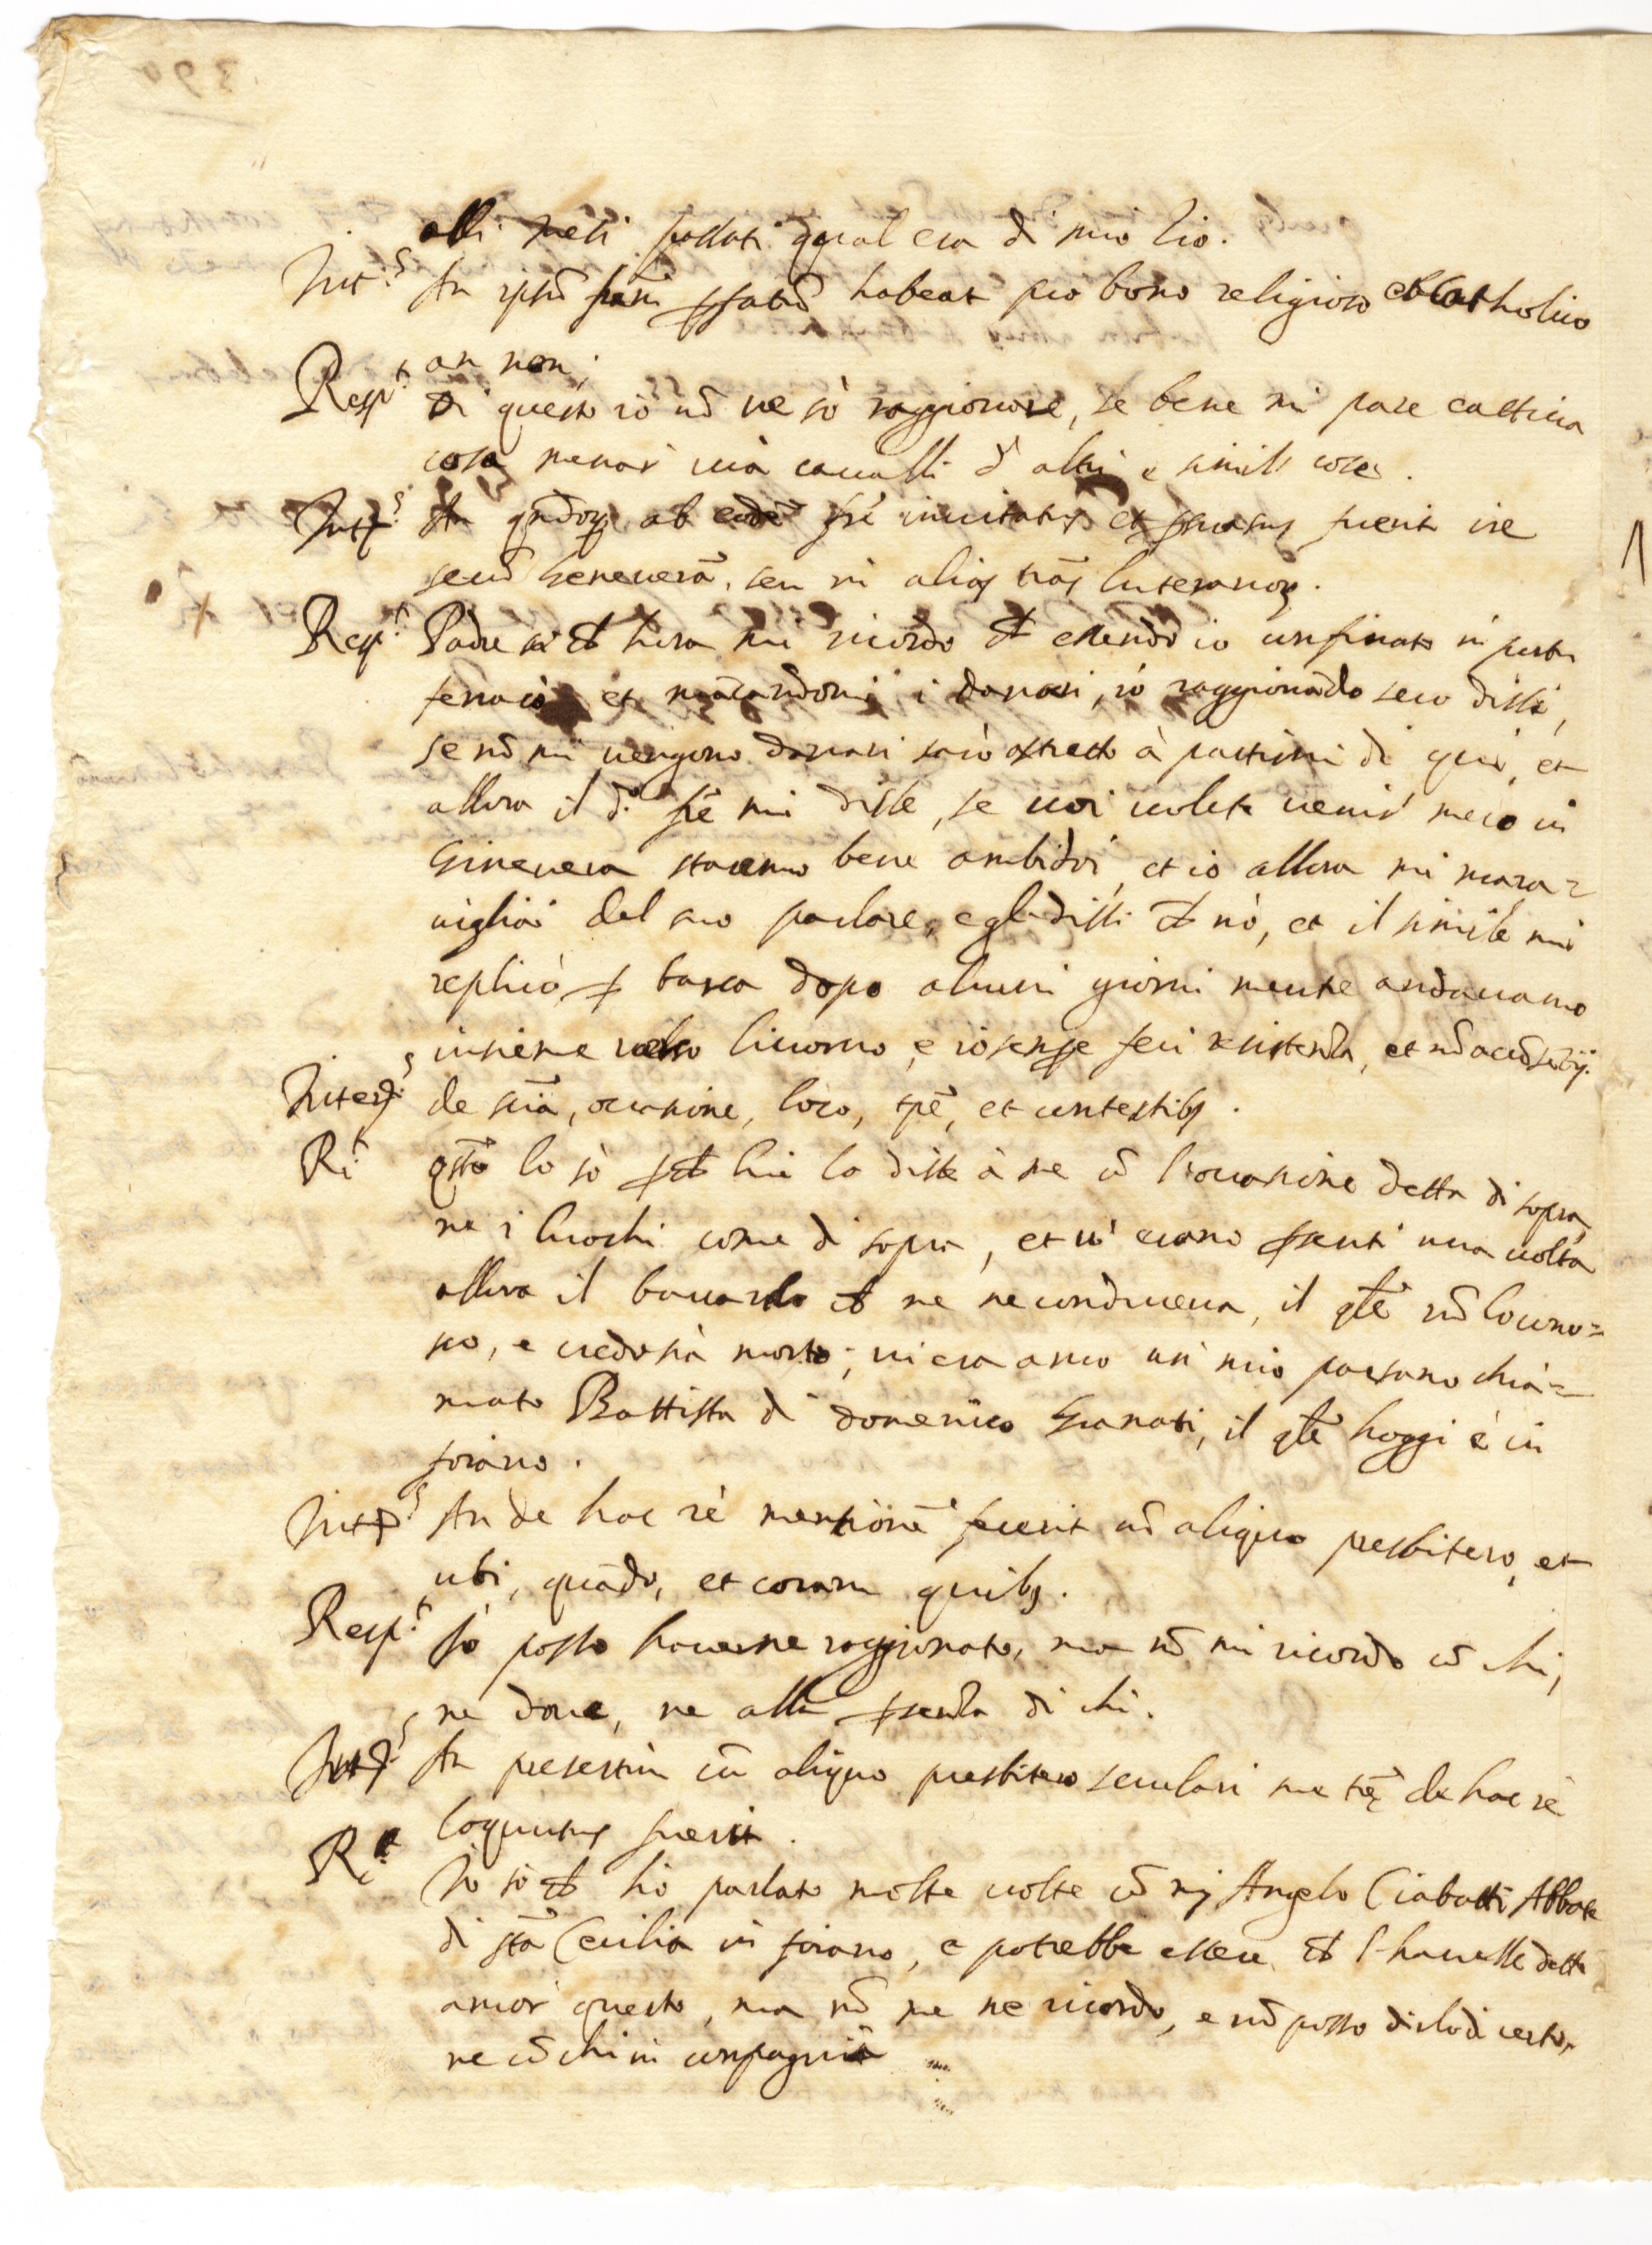 alli mesi passati qual era di mio Zio.
Int.s An ipsũ frãm p̱fatũ habeat pro bono religioso et Catholico
an non;
Resp.t Di questo iò nõ ne sò raggionare, se bene mi pare cattiua
cosa menar uià caualli d'altri e simili cose.
Int.s An qñdoq ab eodẽ frẽ inuitatus et p̱suasus fuerit ire
secũ Geneuerã, seu in alias trãs luteranor.
Resp.t Padre si che hora mi ricordo che essendo io confinato in porto
ferraiò et mãcandomi i danari, iò raggionãdo seco dissi,
se nõ mi uengono danari sarò astretto à partirmi di qui, et
allora il d.º frẽ mi disse, se uoi uolete uenir meco in
Gineuera staremo bene ambidoi, et iò allora mi mara=
uigliai del suo parlare, e gli dissi che nò, et il simile mi
replicò p̱ barca dopo alcuni giorni mentre andauamo
insieme uerso liuorno, e io sempre feci resistenza, et nõ acõsẽtij.
Interr.s de sciã, occasione, loco, tpẽ, et contestibus.
R.t qsto lo sò p̱che lui lo disse à me cõ l'occasione detta di sopra,
ne i luochi come di sopra, et ui erano p̱senti una uolta
allora il bauarolo che ne ne conduceua, il qle nõ lo cono=
sco, e credo sià morto; ui era anco un mio paesano chia=
mato Battista di Domenico Granati, il qle hoggi è in
soriano.
Int.s An de hac rè mentionẽ fecerit cũ aliquo presbitero, et
ubi, quãdo, et coram quibus.
Resp.t Iò posso hauerne raggionato, ma nõ mi ricordo cõ chi,
ne doue, ne alla p̱senza di chi.
Int.s An presertim cũ aliquo presbitero seculari suae trẽ de hac rè
loquutus fuerit.
R.t Iò sò che hò parlato molte uolte cõ ms Angelo Ciabatti Abbate
di sta Cecilia in soriano, e potrebbe essere che l'hauesse detto
ancor questo, ma nõ me ne ricordo, e nõ posso dirlo di certo,
ne cõ chi in compagnia